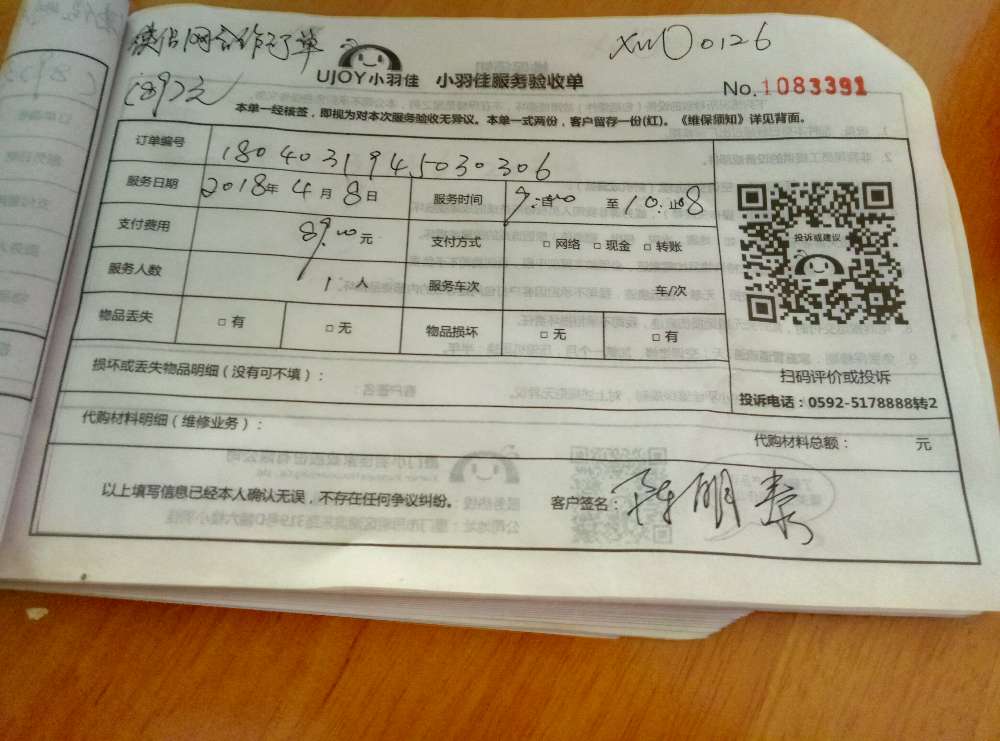 网合作订单
XM00126
UJOY小羽佳 小羽佳服务验收单
No.1083391
(89)元
本单一经核签，即视为对本次服务验收无异议。本单一式两份，客户留存一份(红)。《维保须知》详见背面。
订单编号 180403194503030 6
服务日期 2018年4月8日 服务时间 9:00 至 10:08
支付费用 89.00元 支付方式 □ 网络 □ 现金 □ 转账
投诉或建议
服务人数 1 人 服务车次 车/次
物品丢失 □ 有 □ 无 物品损坏 □ 无 □ 有
损坏或丢失物品明细（没有可不填）：
扫码评价或投诉
投诉电话：0592-5178888转2
代购材料明细（维修业务）：
代购材料总额： 元
以上填写信息已经本人确认无误，不存在任何争议纠纷。 客户签名：陈明泰